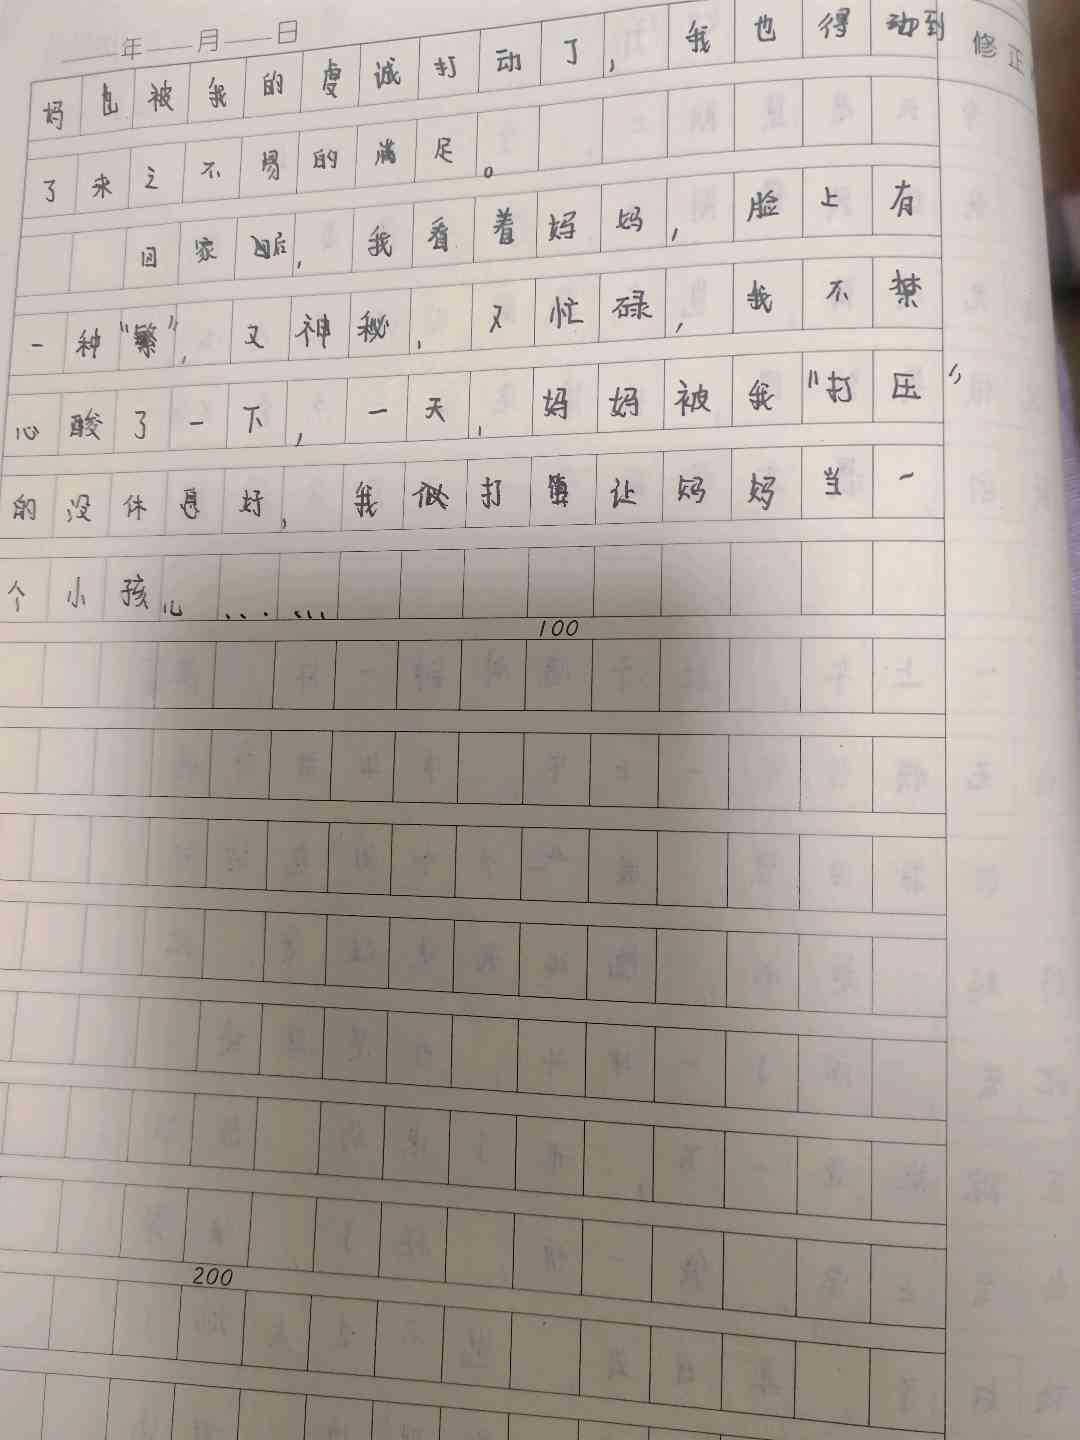 年 月 日
修正
妈也被我的虔诚打动了，我也得动到
了来之不易的满足。
回家后，我看着妈妈，脸上有
一种“繁”，又神秘，又忙碌，我不禁
心酸了一下，一天，妈妈被我“打压”
的没休息好，我打算让妈妈当一
个小孩儿……
100
200